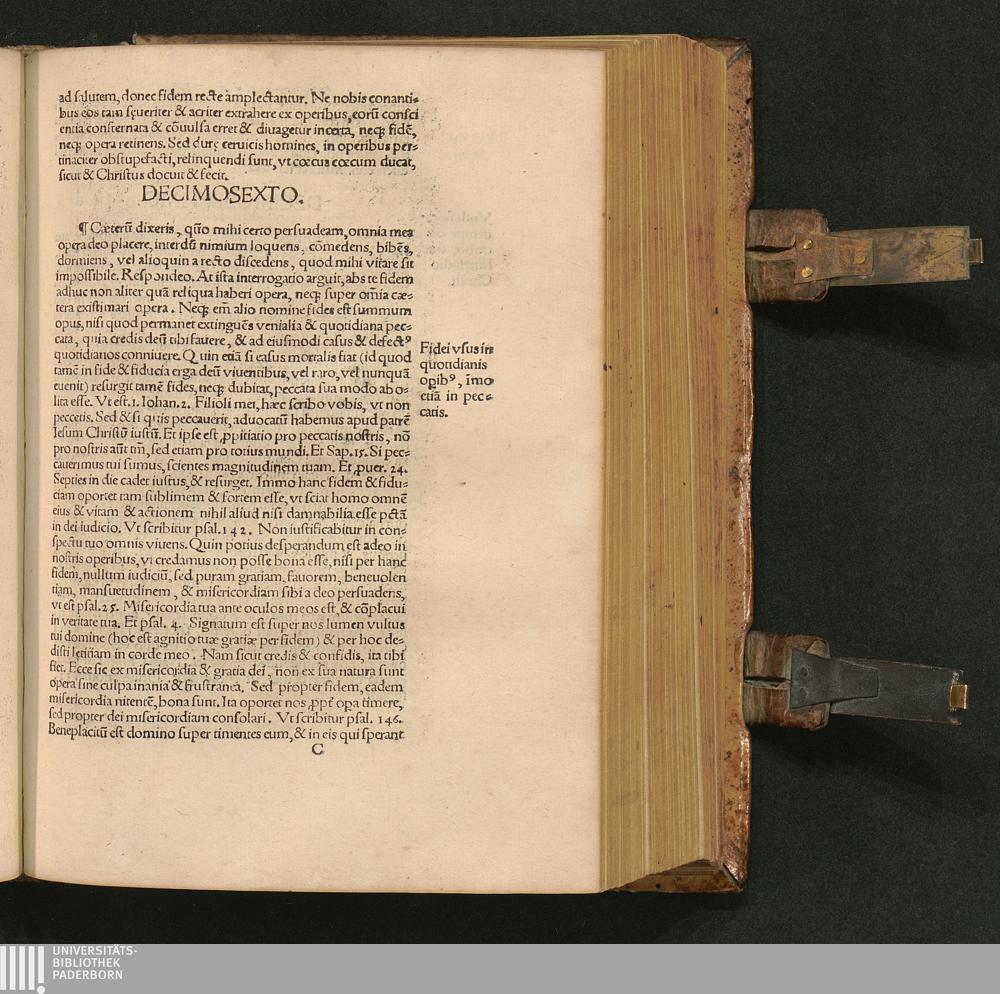 ad salutem, donec fidem recte amplectantur. Ne nobis conanti-
bus eos tam seueriter & acriter extrahere ex operibus, eorū consci
entia consternata & cōuulsa erret & diuagetur incerta, neqꝫ fidē,
neqꝫ opera retinens. Sed durę ceruicis homines, in operibus per-
tinaciter obstupefacti, relinquendi sunt, vt cœcus cœcum ducat,
sicut & Christus docuit & fecit.
DECIMOSEXTO.
¶ Cæterū dixeris, quō mihi certo persuadeam, omnia mea
opera deo placere, interdū nimium loquens, cōmedens, bibēs,
dormiens, vel alioquin a recto discedens, quod mihi vitare sit
impossibile. Respondeo. At ista interrogatio arguit, abs te fidem
adhuc non aliter quā reliqua haberi opera, neqꝫ super omīa cæ-
tera existimari opera. Neqꝫ em̄ alio nomine fides est summum
opus, nisi quod permanet extinguēs venialia & quotidiana pec-
cata, quia credis deū tibi fauere, & ad eiusmodi casus & defectꝰ
quotidianos conniuere. Quin etiā si casus mortalis fiat (id quod
tamē in fide & fiducia erga deū viuentibus, vel raro, vel nunquā
euenit) resurgit tamē fides, neqꝫ dubitat, peccata sua modo abo-
lita esse. Vt est. 1. Iohan. 2. Filioli mei, hæc scribo vobis, vt non
peccetis. Sed & si quis peccauerit, aduocatū habemus apud patrē
Iesum Christū iustū. Et ipse est ꝓpitiatio pro peccatis nostris, nō
pro nostris aūt tm̄, sed etiam pro totius mundi. Et Sap. 15. Si pec-
cauerimus tui sumus, scientes magnitudinem tuam. Et ꝓuer. 24.
Septies in die cadet iustus, & resurget. Immo hanc fidem & fidu-
ciam oportet tam sublimem & fortem esse, vt sciat homo omnē
eius & vitam & actionem nihil aliud nisi damnabilia esse pctā
in dei iudicio. Vt scribitur psal. 142. Non iustificabitur in con-
spectu tuo omnis viuens. Quin potius desperandum est adeo in
nostris operibus, vt credamus non posse bona esse, nisi per hanc
fidem, nullum iudiciū, sed puram gratiam, fauorem, beneuolen
tiam, mansuetudinem, & misericordiam sibi a deo persuadens,
vt est psal. 25. Misericordia tua ante oculos meos est, & cōplacui
in veritate tua. Et psal. 4. Signatum est super nos lumen vultus
tui domine (hoc est agnitio tuæ gratiæ per fidem) & per hoc de-
disti lętitiam in corde meo. Nam sicut credis & confidis, ita tibi
fiet. Ecce sic ex misericordia & gratia dei, non ex sua natura sunt
opera sine culpa inania & frustranea. Sed propter fidem, eadem
misericordia nitentē, bona sunt. Ita oportet nos ꝓpt̄ opa timere,
sed propter dei misericordiam consolari. Vt scribitur psal. 146.
Beneplacitū est domino super timentes eum, & in eis qui sperant
C
Fidei vsus in
quotidianis
opibꝰ, īmo
etiā in pec-
catis.
UNIVERSITÄTS-
BIBLIOTHEK
PADERBORN